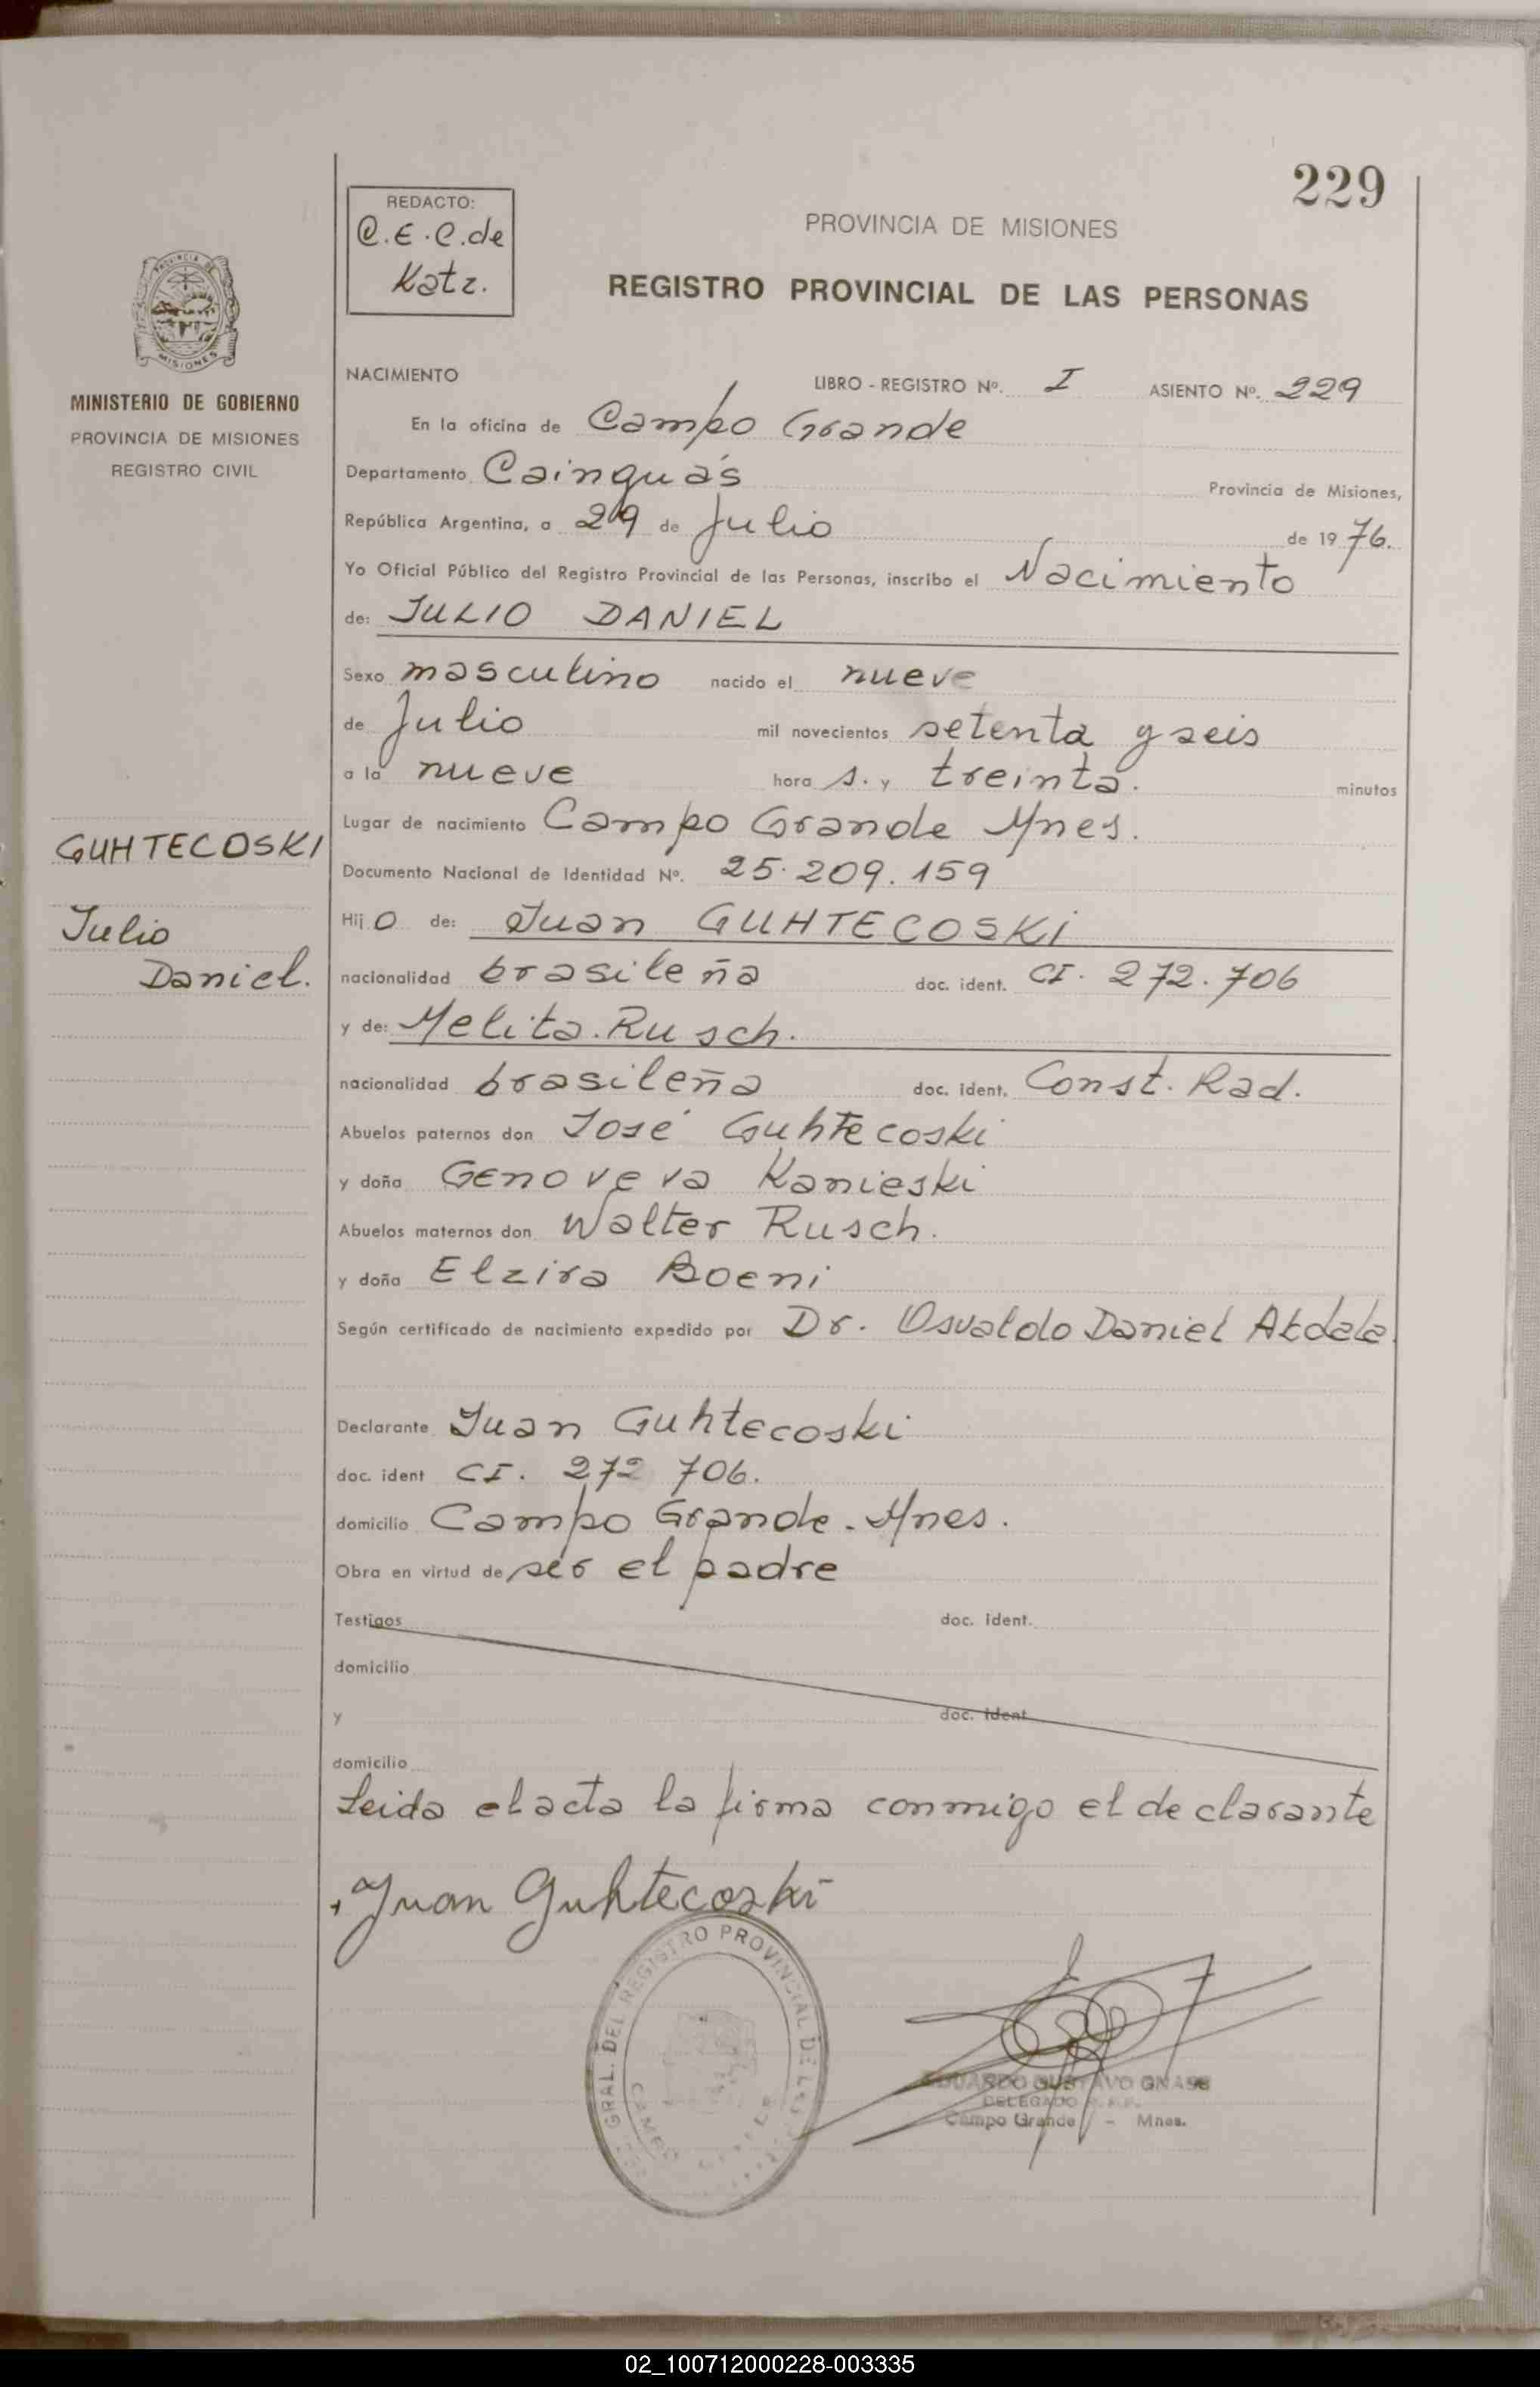 229
REDACTO:
C.E.C. de
Katz.
PROVINCIA DE MISIONES
REGISTRO PROVINCIAL DE LAS PERSONAS
MISIONES
MINISTERIO DE GOBIERNO
PROVINCIA DE MISIONES
REGISTRO CIVIL
NACIMIENTO LIBRO - REGISTRO Nº. I ASIENTO Nº. 229
En la oficina de Campo Grande
Departamento Cainguás Provincia de Misiones,
República Argentina, a 29 de Julio de 1976.
Yo Oficial Público del Registro Provincial de las Personas, inscribo el Nacimiento
de: JULIO DANIEL
Sexo masculino nacido el nueve
de Julio mil novecientos setenta y seis
a la nueve hora s. y treinta. minutos
Lugar de nacimiento Campo Grande Mnes.
GUHTECOSKI
Julio
Daniel.
Documento Nacional de Identidad Nº. 25.209.159
Hijo de: Juan GUHTECOSKi
nacionalidad brasileña doc. ident. CI. 272.706
y de: Melita Rusch.
nacionalidad brasileña doc. ident. Const. Rad.
Abuelos paternos don José Guhtecoski
y doña Genoveva Kanieski
Abuelos maternos don Walter Rusch.
y doña Elzira Boeni
Según certificado de nacimiento expedido por Dr. Osvaldo Daniel
Declarante Juan Guhtecoski
doc. ident CI. 272 706.
domicilio Campo Grande - Mnes.
Obra en virtud de ser el padre
Testigos doc. ident.
domicilio
y doc. ident.
domicilio
Leida el acta la firma conmigo el declarante
Juan Guhtecoski
GRAL. DEL REGISTRO PROVINCIAL DE LAS
CAMPO
EDUARDO GUSTAVO GNASS
DELEGADO
Campo Grande - Mnes.
02_100712000228-003335